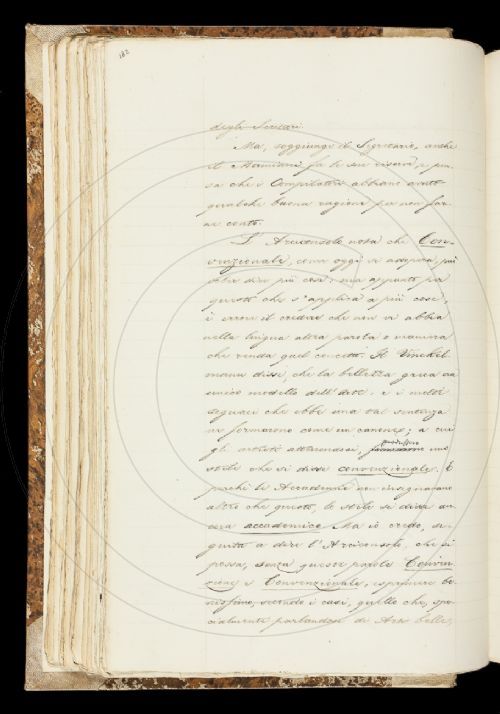 182
degli Scrittori.
Ma, soggiunge il Segretario, anche
il Mamiani fa le sue riserve, e pen-
sa che i Compilatori abbiano avuto
qualche buona ragione per non far-
ne conto.
L'Arciconsolo nota che Con-
venzionale, come oggi si adopera, può
voler dire più cose; ma appunto per
questo che s'applica a più cose,
è errore il credere che non vi abbia
nella lingua altra parola o maniera
che renda quel concetto. Il Vinckel-
mann disse, che la bellezza greca era
unico modello dell'arte: e i molti
seguaci che ebbe una tal sentenza
ne formarono come un canone; a cui
gli artisti attenendosi, uno
stile che si disse convenzionale. E
perchè le Accademie non insegnavano
altro che questo, lo stile si disse an-
cora accademico. Ma io credo, se-
guita a dire l'Arciconsolo, che si
possa, senza queste parole Conven-
zione e Convenzionale, esprimere be-
nissimo, secondo i casi, quello che, spe-
cialmente parlandosi di Arti belle,